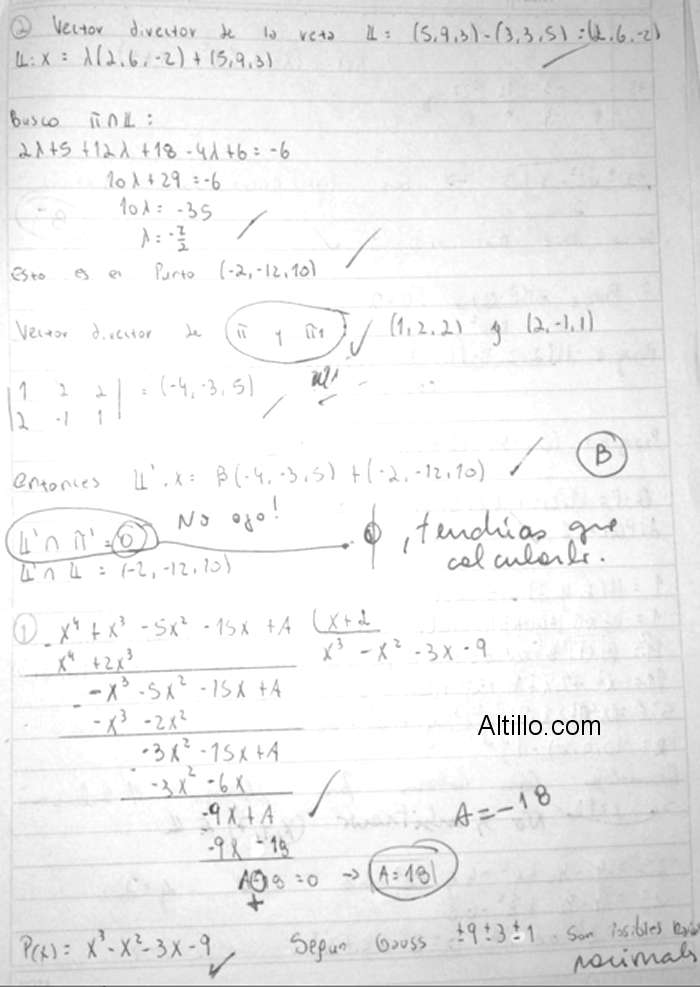 ② Vector director de la reta 𝕃: (5,9,3)-(3,3,5) = (2,6,-2)
𝕃: X = λ(2,6,-2)+(5,9,3)
Busco π∩𝕃:
2λ+5+12λ+18-4λ+6=-6
10λ+29=-6
10λ= -35
λ=-7/2
Esto es el Punto (-2,-12,10)
Vector director de π y π1 (1,2,2) y (2,-1,1)
|1 2 2| = (-4,-3,5)
|2 -1 1|
entonces 𝕃'.x = β(-4,-3,5)+(-2,-12,10)
B
No ojo!
𝕃'∩π'=0 , tendrías que
calcularlo.
𝕃'∩𝕃 = (-2,-12,10)
① x⁴+x³-5x²-15x+A | x+2
x⁴+2x³ x³-x²-3x-9
-x³-5x²-15x+A
-x³-2x²
Altillo.com
-3x²-15x+A
-3x²-6x
-9x+A A=-18
-9x-18
A 18=0 → A=18
+
P(x)= x³-x²-3x-9 Segun Gauss ±9±3±1 Son
racionales